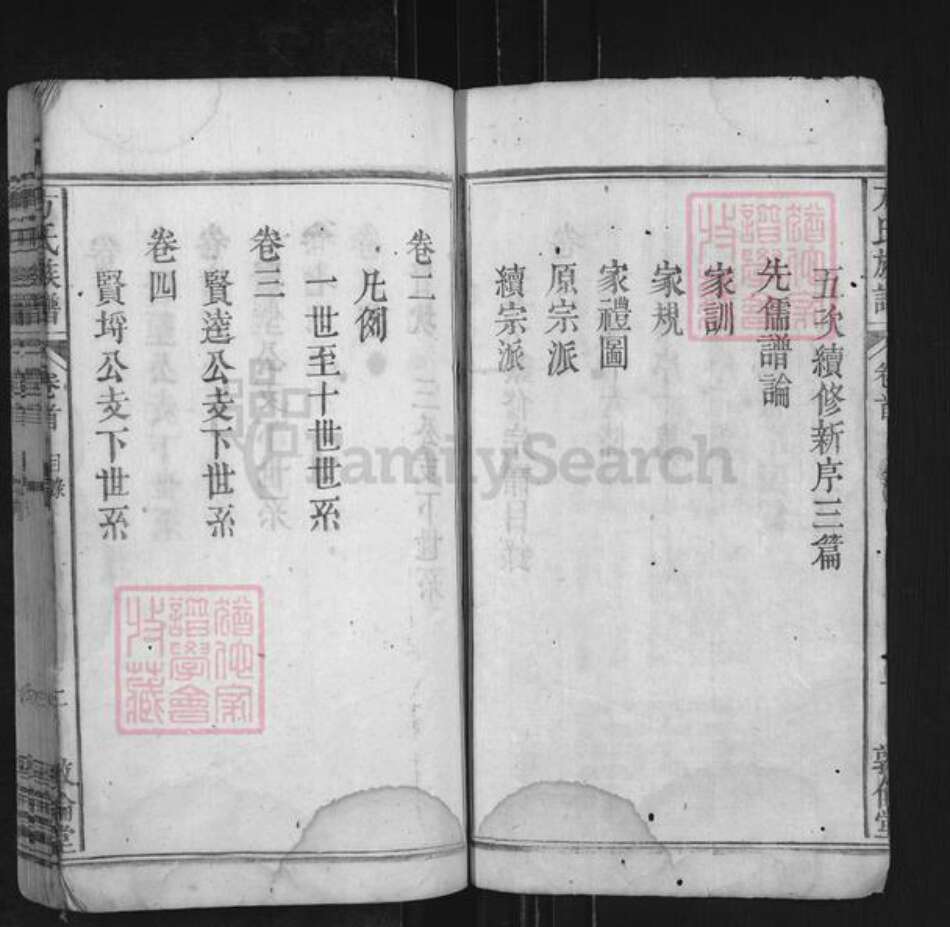 五次續修新序三篇
先儒譜論
家訓
家規
家禮圖
原宗派
續宗派
卷二
凡例
一世至十世世系
卷三
賢逵公支下世系
卷四
賢埒公支下世系
方氏族譜 卷首 目錄 二 敦倫堂
方氏族譜 卷首 敦倫堂
猶他家譜學會收藏
猶他家譜學會收藏
FamilySearch